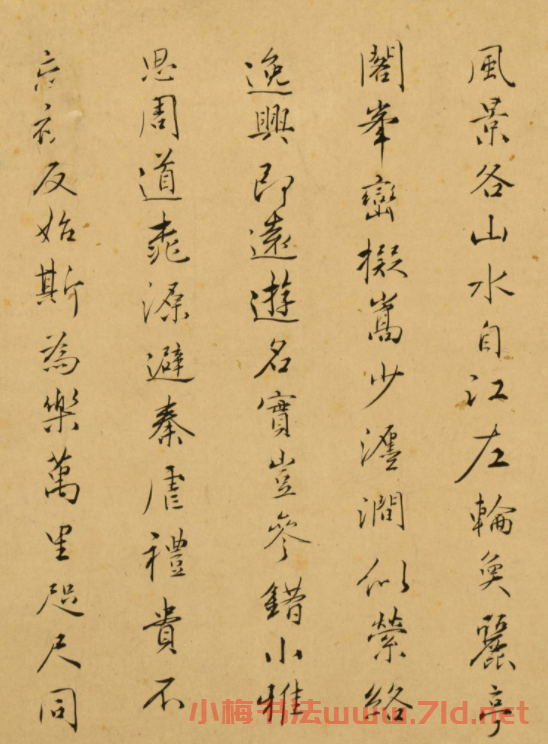 風景各山水自江左輪奐麗亭
閣峯巒擬嵩少瀍澗似縈絡
逸興即遠遊名實豈參錯小雅
思周道桃源避秦虐禮貴不
忘衣反始斯為樂萬里咫尺同
小梅书法www.7ld.net